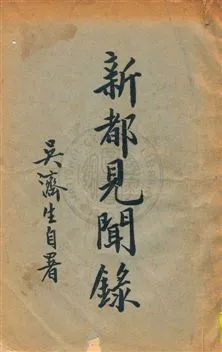 新都見聞錄
吳濟生自署